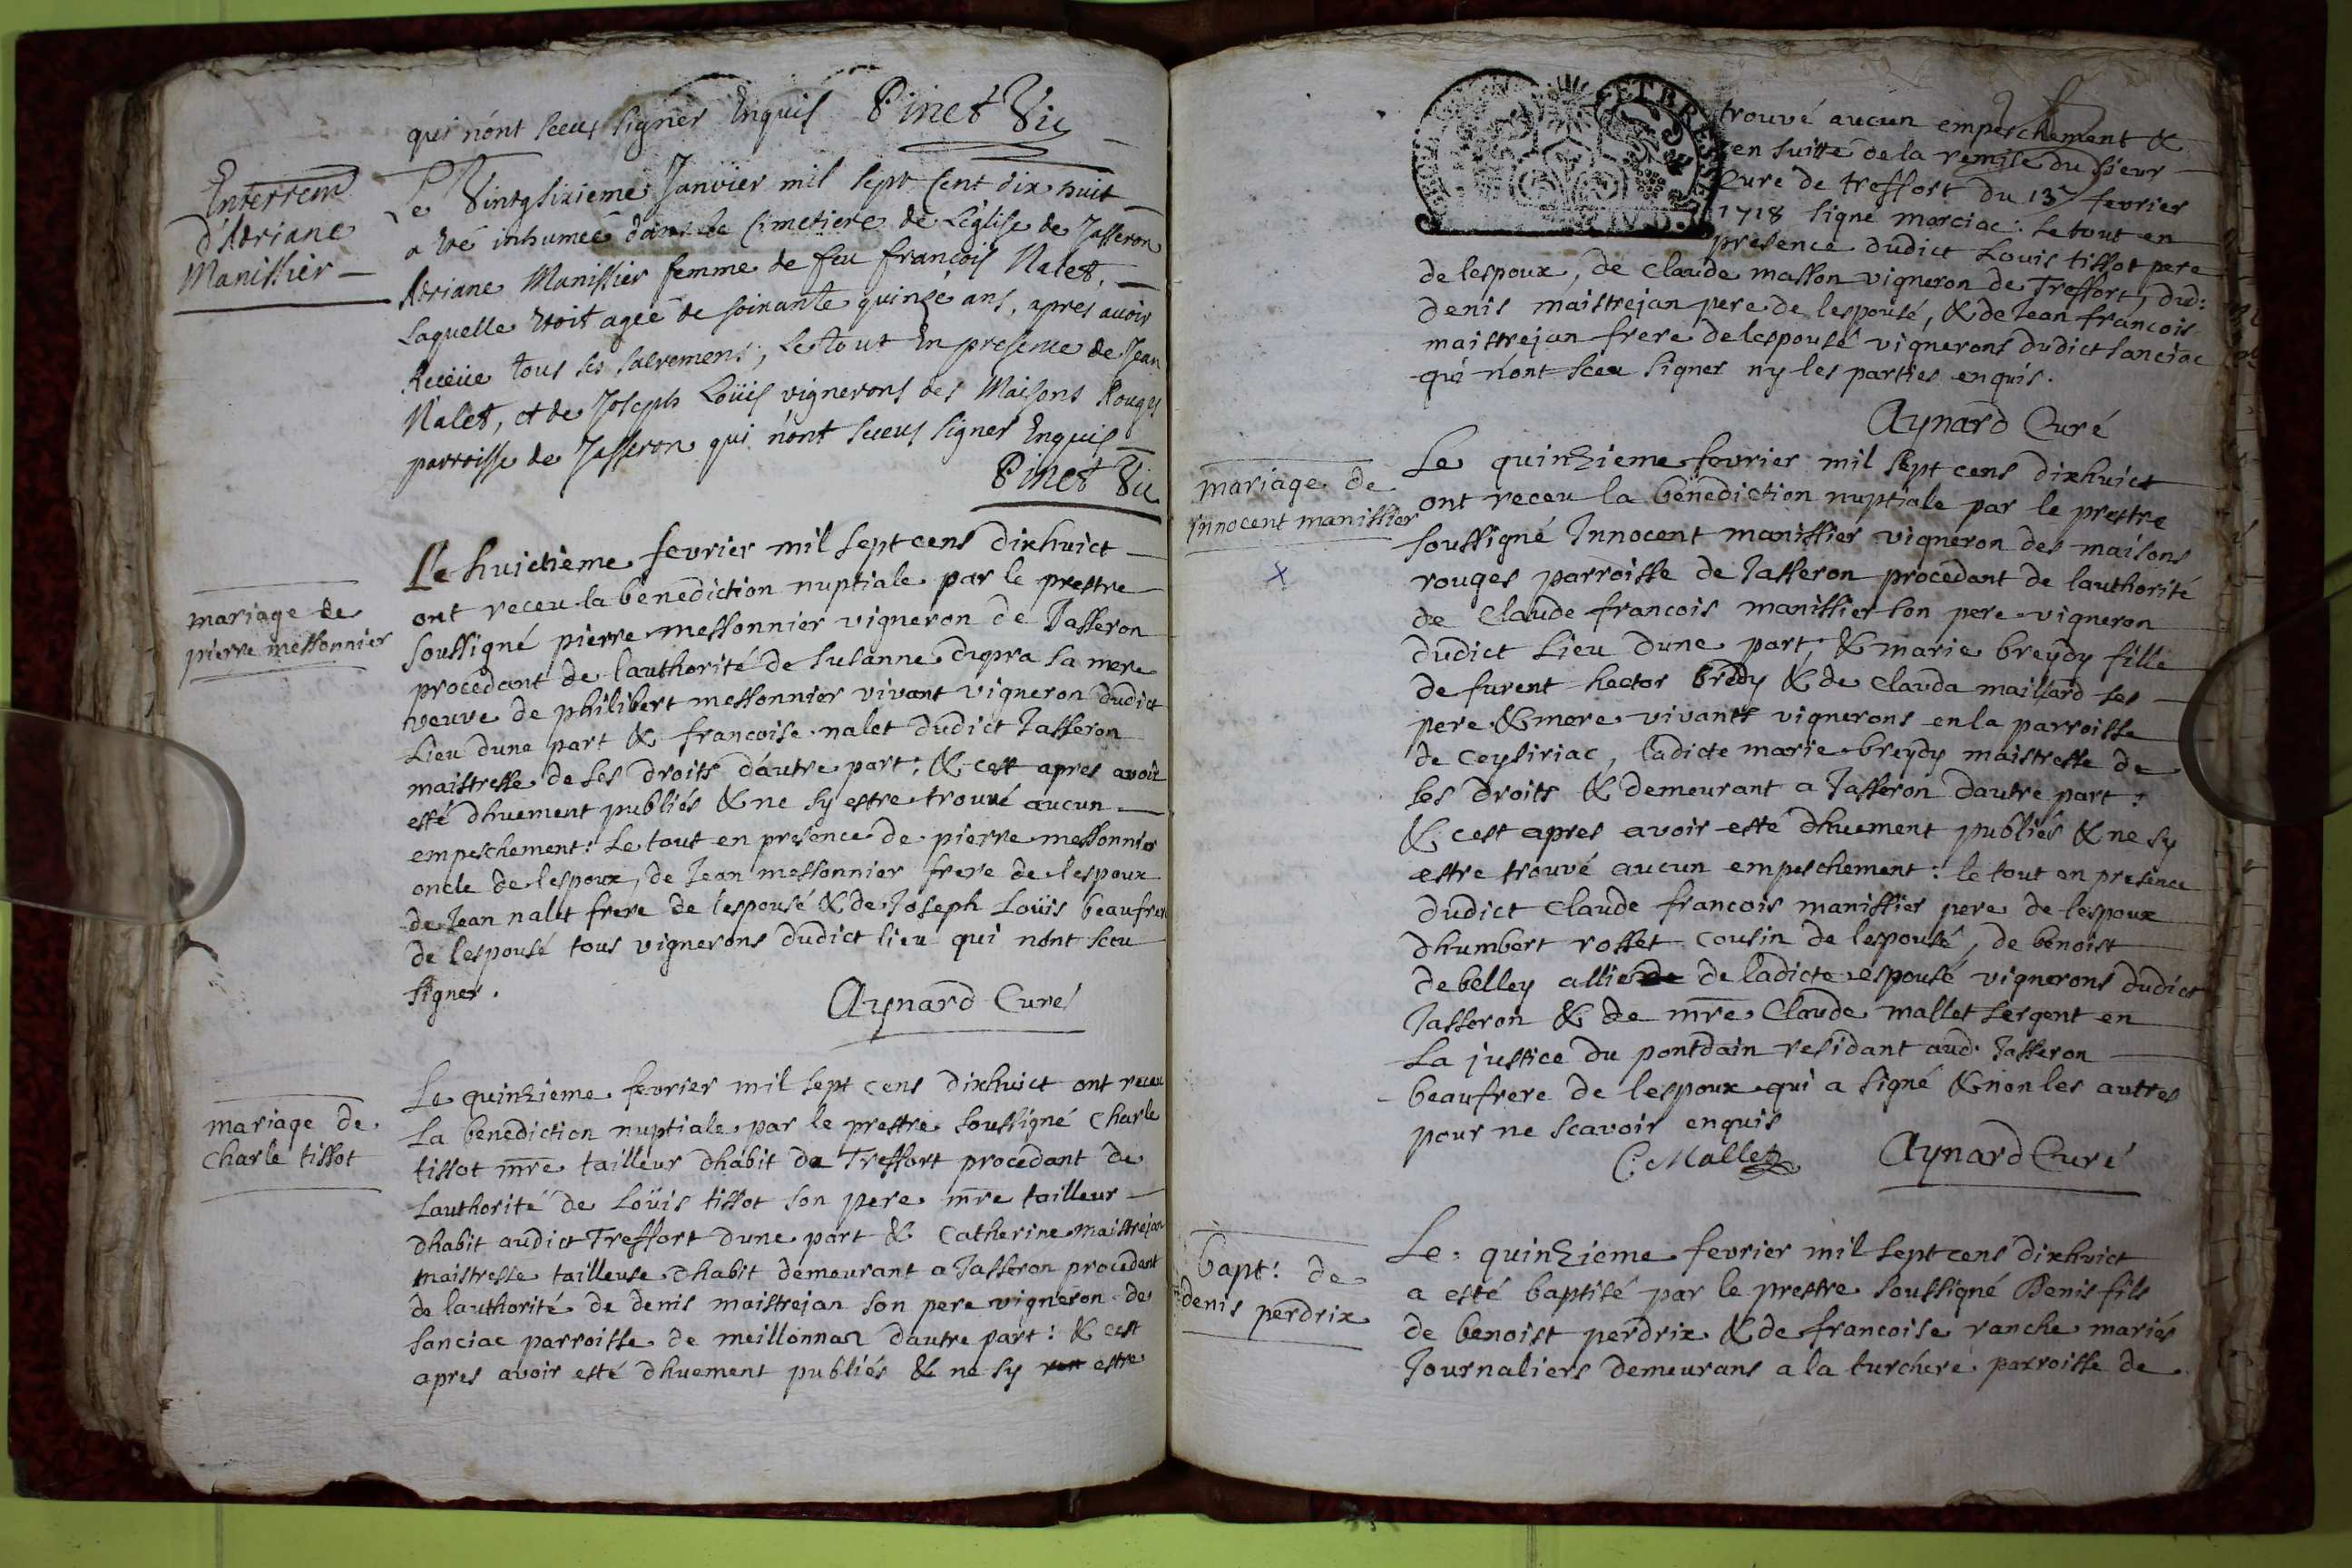 qui n'ont sceus signer Enquis Pinet Vic
Enterrem
d'Adriane
Manissier
Le Vintgsixieme Janvier mil sept Cent dix huit
a eté inhumeé dans le Cimetiere de L'église de Jasseron
Adriane Manissier femme de feu françois Nalet,
Laquelle etoit ageé de soixante quinze ans, apres avoir
Receüe tous ses sacremens; Le tout En presence de Jean
Nalet, et de Joseph Loüis vignerons des Maisons Rouges
parroisse de Jasseron qui n'ont sceus signer Enquis
Pinet Vic
mariage de
pierre messonnier
Le huictieme fevrier mil sept cens dixhuict
ont receu la benediction nuptiale par le prestre
soussigné pierre messonnier vigneron de Jasseron
procedant de l'authorité de susanne dupra sa mere
veuve de philibert messonnier vivant vigneron dudict
Lieu dune part & francoise nalet dudict Jasseron
maistresse de ses droits d'autre part: & cest apres avoir
esté dhuement publiés & ne sy estre trouvé aucun
empeschement: Le tout en presence de pierre messonnier
oncle de lespoux, de Jean messonnier frere de lespoux
de Jean nalet frere de lespousé & de Joseph Loüis beaufrere
de lespousé tous vignerons dudict lieu qui nónt sceu
signer.
Aynard Curé
mariage de
Charle tissot
Le quinzieme fevrier mil sept cens dixhuict ont receu
La benediction nuptiale par le prestre soussigné Charle
tissot mre tailleur dhabit de Treffort procedant de
Lauthorité de Loüis tissot son pere mre tailleur
dhabit audict Treffort dune part & Catherine maistrejan
maistresse tailleuse dhabit demeurant a Jasseron procedant
de lauthorité de denis maistrejan son pere vigneron de
sanciac parroisse de meillonnaz dautre part: & cest
apres avoir esté dhuement publiés & ne sy estre
trouvé aucun emperchement &
en suitte de la remise du sieur
Curé de treffort du 13e fevrier
1718 signé marciac: Le tout en
presence dudict Louis tissot pere
de lespoux, de Claude masson vigneron de Treffort, dud:
denis maistrejan pere de lespousé, & de Jean francois
maistrejan frere de lespousé vignerons dudict sanciac
qui nónt sceu signer ny les parties enquis.
Aynard Curé
mariage de
Innocent manissier
x
Le quinzieme fevrier mil sept cens dixhuict
ont receu la benediction nuptiale par le prestre
soussigné Innocent manissier vigneron des maisons
rouges parroisse de Jasseron procedant de lauthorité
de Claude francois manissier son pere vigneron
dudict Lieu dune part, & marie breydy fille
de furent hector bredy & de Clauda maillard ses
pere & mere vivants vignerons en la parroisse
de Ceysiriac, ladicte marie breydy maistresse de
ses droits & demeurant a Jasseron dautre part:
& cest apres avoir esté dhuement publiés & ne sy
estre trouvé aucun empeschement: le tout en presence
dudict Claude francois manissier pere de lespoux
dhumbert rosset cousin de lespousé, de benoist
debelley allié de ladicte espousé vignerons dudict
Jasseron & de mre Claude mallet sergent en
La justice du pontdain residant aud. Jasseron
beaufrere de lespoux qui a signé & non les autres
pour ne scavoir enquis
C. Mallet Aynard Curé
bapt: de
denis perdrix
Le quinzieme fevrier mil sept cens dixhuict
a esté baptisé par le prestre soussigné Denis fils
de benoist perdrix & de francoise ranche mariés
Journaliers demeurans a la turchere parroisse de